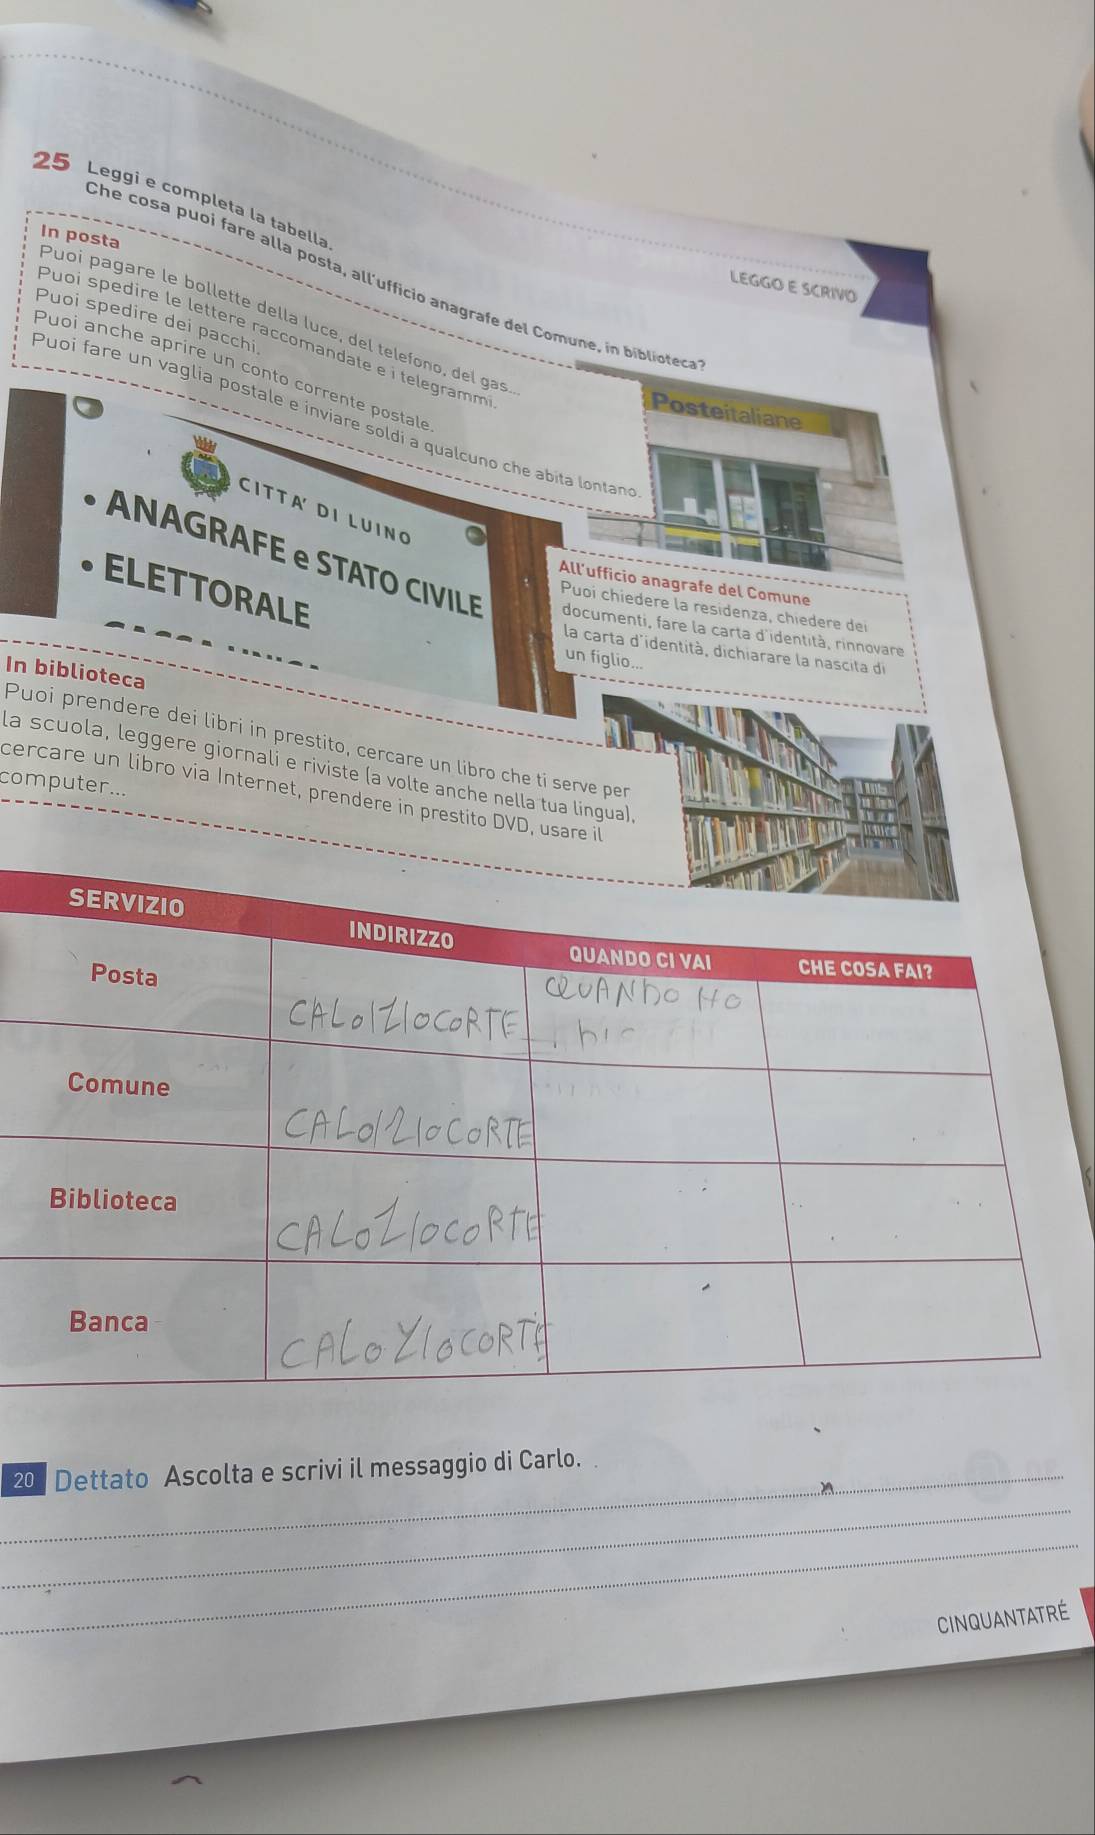 25 Leggi e completa la tabella.
Che cosa puoi fare alla posta, all'ufficio anagrafe del Comune, in biblioteca?
LEGGO E SCRIVO
In posta
Puoi pagare le bollette della luce, del telefono, del gas...
Puoi spedire le lettere raccomandate e i telegrammi.
Puoi spedire dei pacchi.
Puoi anche aprire un conto corrente postale.
Puoi fare un vaglia postale e inviare soldi a qualcuno che abita lontano.
Posteitaliane
CITTA' DI LUINO
• ANAGRAFE e STATO CIVILE
• ELETTORALE
All'ufficio anagrafe del Comune
Puoi chiedere la residenza, chiedere dei
documenti, fare la carta d'identità, rinnovare
la carta d'identità, dichiarare la nascita di
un figlio...
In biblioteca
Puoi prendere dei libri in prestito, cercare un libro che ti serve per
la scuola, leggere giornali e riviste (a volte anche nella tua lingua),
cercare un libro via Internet, prendere in prestito DVD, usare il
computer...
SERVIZIO INDIRIZZO QUANDO CI VAI CHE COSA FAI?
Posta CALOIZIOCORTE QUANDO HO
Comune CALOIZIOCORTE
Biblioteca CALOZIOCORTE
Banca CALOZIOCORTE
20 Dettato Ascolta e scrivi il messaggio di Carlo.
CINQUANTATRÉ